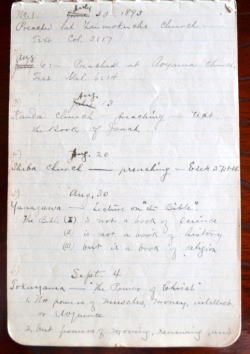 July
30 1893
Preached at Church
Text Col. 2:17
Aug
6:— Preached at Aoyama Church
Text Mat. 6:14
Aug. 13
Church preaching — text
the Book of Jonah
Aug. 20
Shiba Church — preaching — Ezek
Aug. 30
Lecture on "the Bible"
The Bible (1) is not a book of science
(2) is not a book of history
(3) but is a book of religion
Sept. 4
— "the Power of Christ"
1. Not power of muscles, money, intellect,
or eloquence
2. but power of moving, renewing and